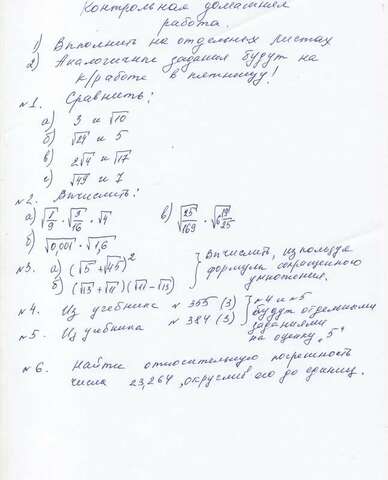 Контрольная домашняя
работа.
1) Вполнить на отдельных листах
2) Аналогичные задания будут на
к/работе в пятницу!
№1. Сравнить:
а) 3 и √10
б) √24 и 5
в) 2√4 и √17
г) √49 и 7
№2. Вычислить:
а) √1/9 · √9/16 · √4 в) √25/169 · √6 19/25
б) √0,001 · √1,6
№3. а) (√5 + √45)² } Вычислить, используя
б) (√13 + √11)(√11 − √13) формулы сокращенного
умножения.
№4. Из учебника № 355 (3) } №4 и №5
№5. Из учебника № 384 (3) будут отдельными
заданиями
на оценку „5"
№6. Найти относительную погрешность
числа 23,264, округлив его до единиц.